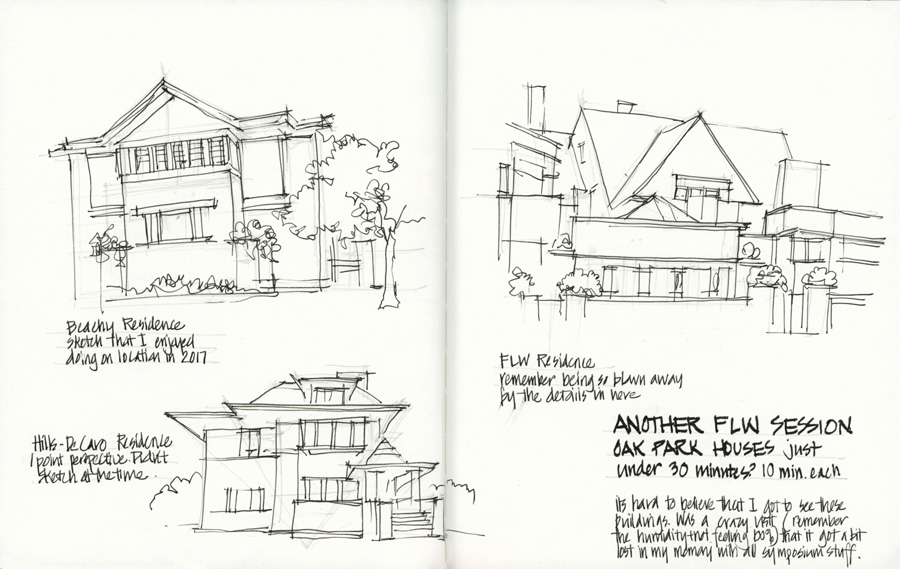 Beachy Residence
sketch that I enjoyed
doing on location in 2017
Hills-DeCaro Residence
1 point perspective. Didn't
sketch at the time.
FLW Residence
remember being so blown away
by the details in here
ANOTHER FLW SESSION
OAK PARK HOUSES just
under 30 minutes? 10 min. each
its hard to believe that I got to see these
buildings. Was a crazy visit (remember
the humidity+not feeling 100%) that it got a bit
lost in my memory with all symposium stuff.